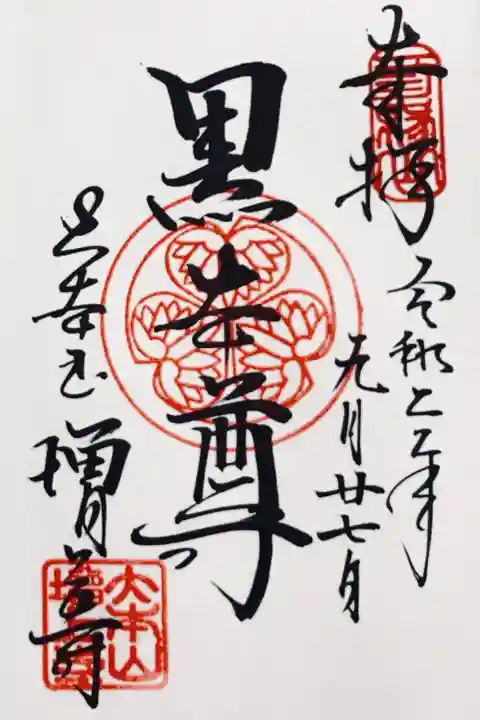 奉拝
令和二年
九月廿七日
黒本尊
増上寺
大本山
増上寺